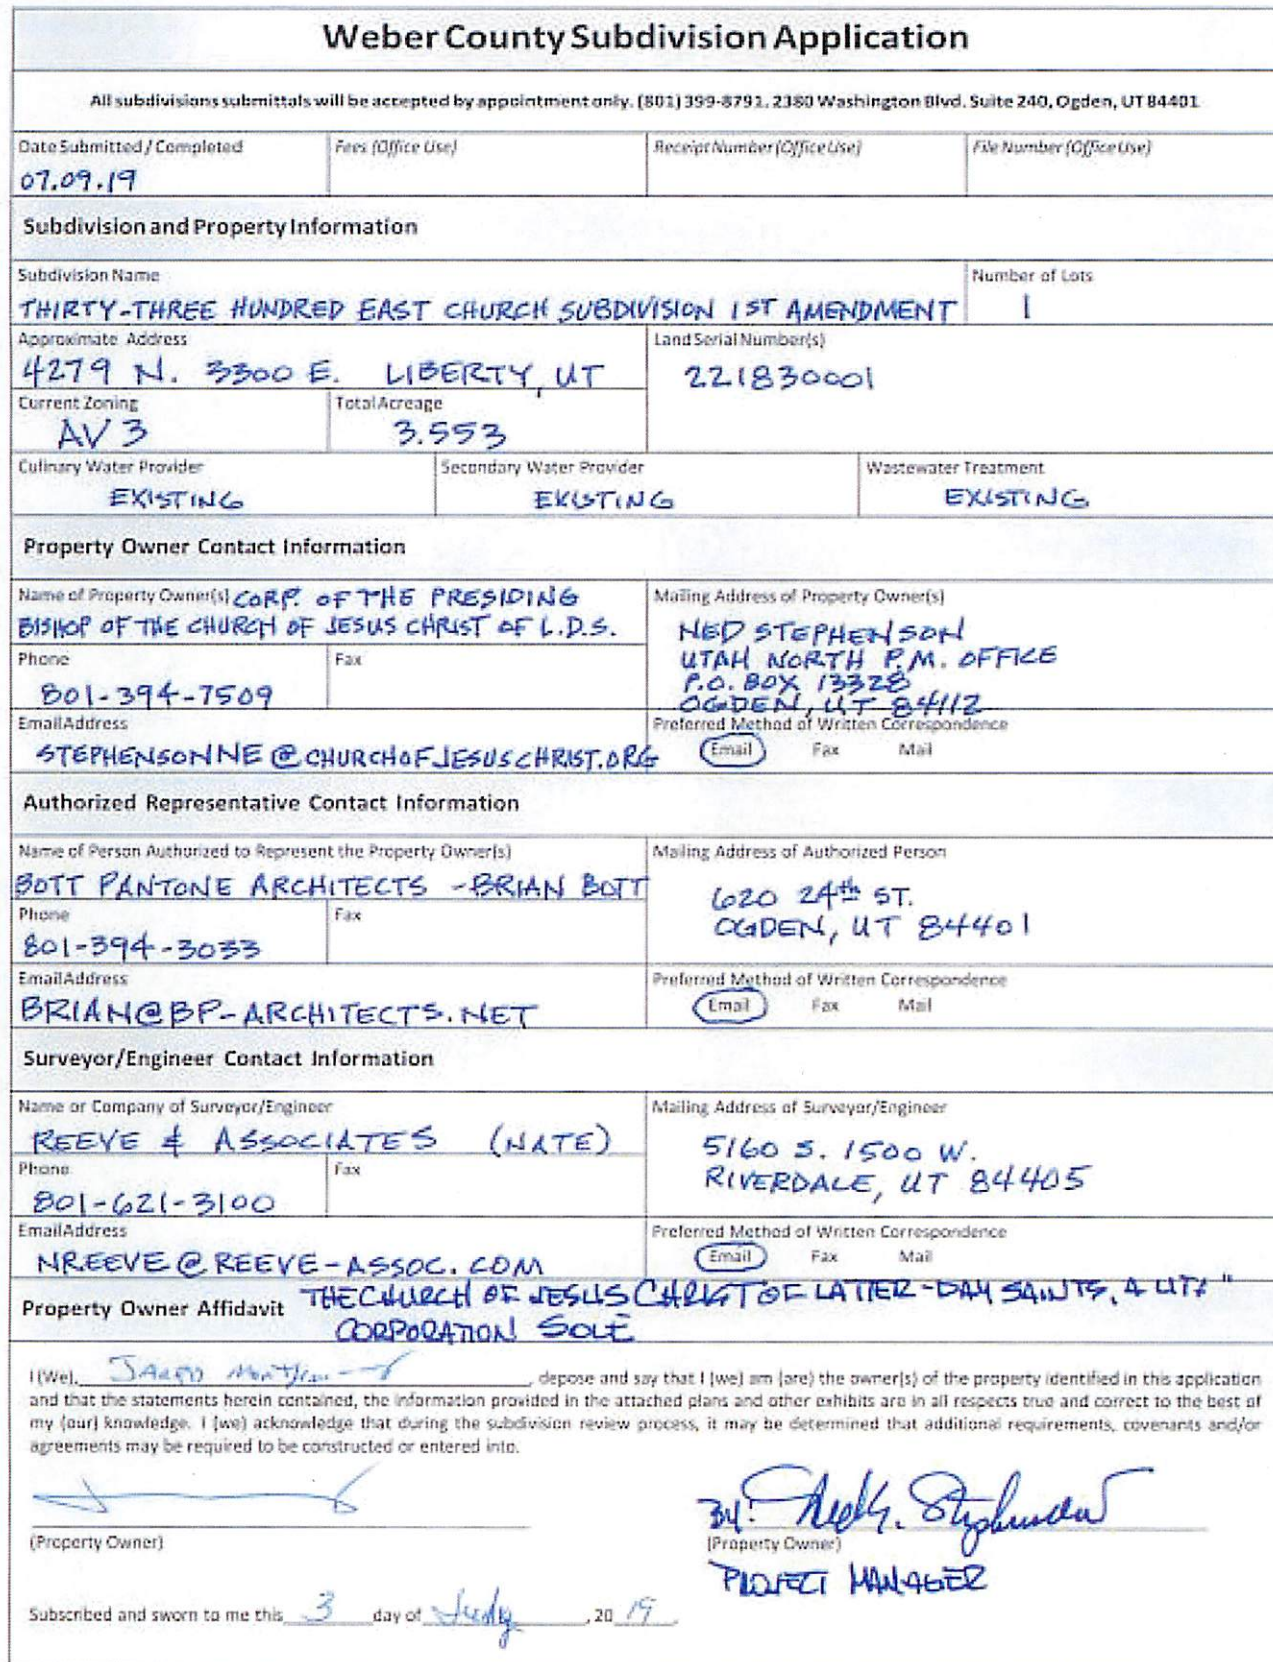 Weber County Subdivision Application
All subdivisions submittals will be accepted by appointment only. (801) 399-8791. 2380 Washington Blvd. Suite 240, Ogden, UT 84401
Date Submitted / Completed
07.09.19
Fees (Office Use)
Receipt Number (Office Use)
File Number (Office Use)
Subdivision and Property Information
Subdivision Name
THIRTY-THREE HUNDRED EAST CHURCH SUBDIVISION 1ST AMENDMENT
Number of Lots
1
Approximate Address
4279 N. 3300 E. LIBERTY, UT
Land Serial Number(s)
221830001
Current Zoning
AV 3
Total Acreage
3.553
Culinary Water Provider
EXISTING
Secondary Water Provider
EXISTING
Wastewater Treatment
EXISTING
Property Owner Contact Information
Name of Property Owner(s) CORP. OF THE PRESIDING
BISHOP OF THE CHURCH OF JESUS CHRIST OF L.D.S.
Mailing Address of Property Owner(s)
NED STEPHENSON
UTAH NORTH P.M. OFFICE
P.O. BOX 13328
OGDEN, UT 84112
Phone
801-394-7509
Fax
Email Address
STEPHENSONNE@CHURCHOFJESUSCHRIST.ORG
Preferred Method of Written Correspondence
Email Fax Mail
Authorized Representative Contact Information
Name of Person Authorized to Represent the Property Owner(s)
BOTT PANTONE ARCHITECTS - BRIAN BOTT
Mailing Address of Authorized Person
620 24th ST.
OGDEN, UT 84401
Phone
801-394-3033
Fax
Email Address
BRIAN@BP-ARCHITECTS.NET
Preferred Method of Written Correspondence
Email Fax Mail
Surveyor/Engineer Contact Information
Name or Company of Surveyor/Engineer
REEVE & ASSOCIATES (NATE)
Mailing Address of Surveyor/Engineer
5160 S. 1500 W.
RIVERDALE, UT 84405
Phone
801-621-3100
Fax
Email Address
NREEVE@REEVE-ASSOC.COM
Preferred Method of Written Correspondence
Email Fax Mail
Property Owner Affidavit THE CHURCH OF JESUS CHRIST OF LATTER-DAY SAINTS, A UTA"
CORPORATION SOLE
I (We), depose and say that I (we) am (are) the owner(s) of the property identified in this application
and that the statements herein contained, the information provided in the attached plans and other exhibits are in all respects true and correct to the best of
my (our) knowledge. I (we) acknowledge that during the subdivision review process, it may be determined that additional requirements, covenants and/or
agreements may be required to be constructed or entered into.
(Property Owner)
BY: Ned K. Stephenson
(Property Owner)
PROJECT MANAGER
Subscribed and sworn to me this 3 day of July, 20 19.